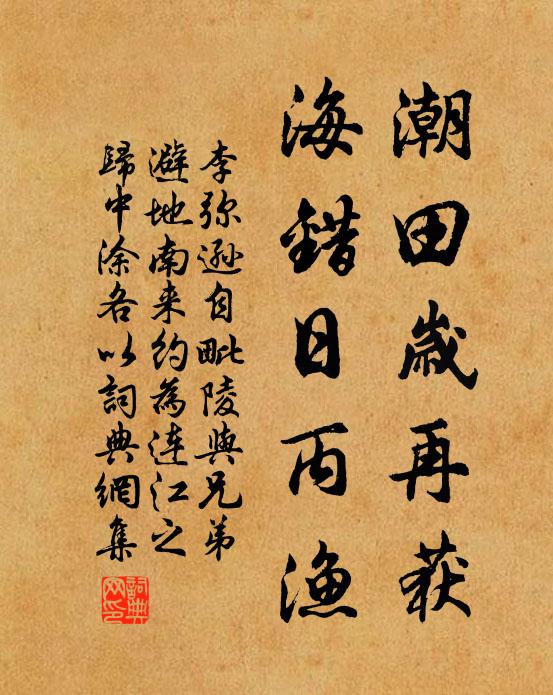 潮田歲再获
海錯日丙漁
李弥遜自毗陵與兄弟
避地南来約為连江之
歸中涂各以詞典網集
詞典網印